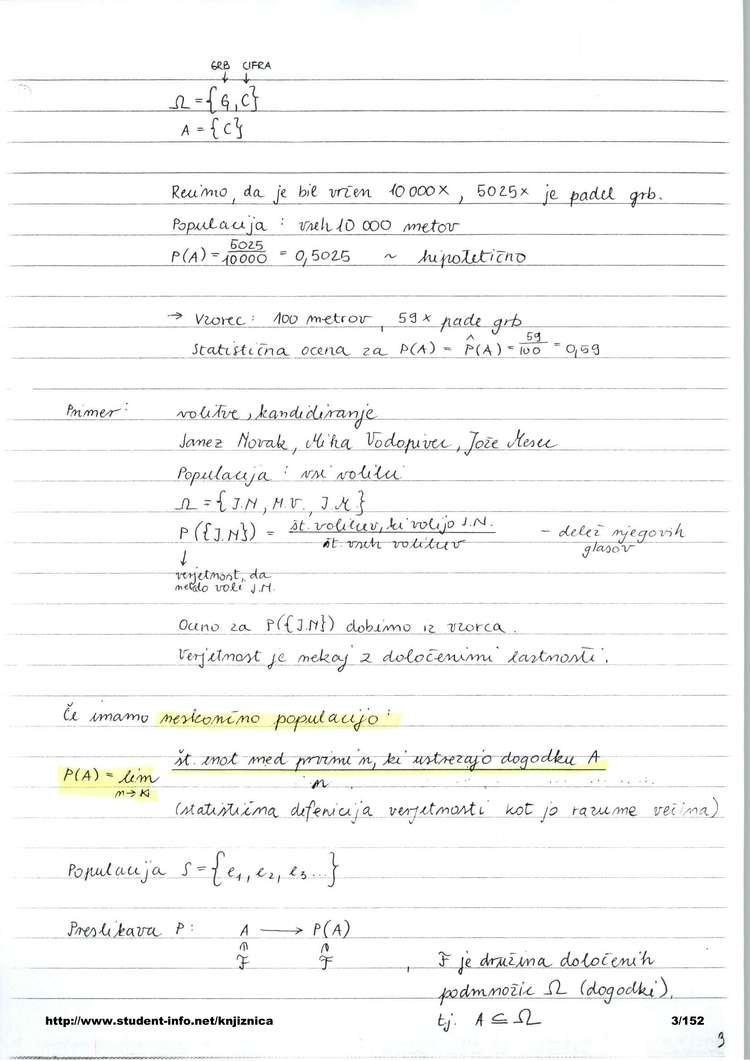 GRB CIFRA
↓ ↓
Ω = {G, C}
A = {C}
Recimo, da je bil vržen 10 000×, 5025× je padel grb.
Populacija : vseh 10 000 metov
P(A) = 5025/10000 = 0,5025 ~ hipotetično
→ Vzorec: 100 metrov, 59× pade grb
Statistična ocena za P(A) = P̂(A) = 59/100 = 0,59
Primer: volitve, kandidiranje
Janez Novak, Miha Vodopivec, Jože Mesec
Populacija : vsi volilci
Ω = {J.N, M.V., J.M}
P({J.N}) = št. volilcev, ki volijo J.N. / št. vseh volilcev - delež njegovih glasov
↓
verjetnost, da
nekdo voli J.N.
Oceno za P({J.N}) dobimo iz vzorca.
Verjetnost je nekaj z določenimi lastnosti.
Če imamo neskončno populacijo:
P(A) = lim n→∞ št. enot med prvimi n, ki ustrezajo dogodku A / n
(statistična defenicija verjetnosti kot jo razume večina)
Populacija S = {e₁, e₂, e₃...}
Preslikava P: A ⟶ P(A)
∩ ∩
F F , F je družina določenih
podmnožic Ω (dogodki),
tj. A ⊆ Ω
http://www.student-info.net/knjiznica 3/152
3